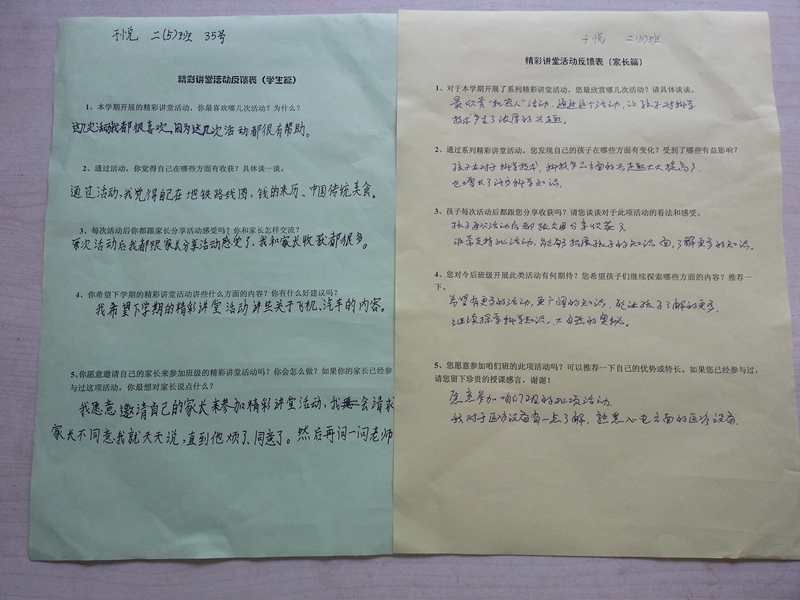 于悦 二(5)班 35号
精彩讲堂活动反馈表（学生篇）
1、本学期开展的精彩讲堂活动，你最喜欢哪几次活动？为什么？
这几次活动我都很喜欢，因为这几次活动都很有帮助。
2、通过活动，你觉得自己在哪些方面有收获？具体谈一谈。
通过活动，我觉得自己在地铁路线图，钱的来历、中国传统美食。
3、每次活动后你都跟家长分享活动感受吗？你和家长怎样交流？
每次活动后我都跟家长分享活动感受了，我和家长收获都很多。
4、你希望下学期的精彩讲堂活动讲些什么方面的内容？你有什么好建议吗？
我希望下学期的精彩讲堂活动讲些关于飞机、汽车的内容。
5、你愿意邀请自己的家长来参加班级的精彩讲堂活动吗？你会怎么做？如果你的家长已经参
与过这项活动，你最想对家长说点什么？
我愿意邀请自己的家长来参加精彩讲堂活动，我会请求
家长不同意我就天天说，直到他烦了，同意了。然后再问一问老师
于悦 二(5)班
精彩讲堂活动反馈表（家长篇）
1、对于本学期开展了系列精彩讲堂活动，您最欣赏哪几次活动？请具体谈谈。
最欣赏“机器人”活动，通过这个活动，让孩子对科学
技术产生了浓厚的兴趣。
2、通过系列精彩讲堂活动，您发现自己的孩子在哪些方面有变化？受到了哪些有益影响？
孩子对于科学技术，科技产品方面的兴趣大大提高了，
也增长了许多科学知识。
3、孩子每次活动后都跟您分享收获吗？请您谈谈对于此项活动的看法和感受。
孩子每次活动后都跟父母分享收获了
非常支持此活动，能够拓展孩子的知识面，了解更多的知识。
4、您对今后班级开展此类活动有何期待？您希望孩子们继续探索哪些方面的内容？推荐一
下。
希望有更多的活动，更广阔的知识，能让孩子了解的更多，
继续探索科学知识、大自然的奥秘。
5、您愿意参加咱们班的此项活动吗？可以推荐一下自己的优势或特长。如果您已经参与过，
请您留下珍贵的授课感言，谢谢！
愿意参加咱们班的此项活动。
我对于医疗设备有一点了解，熟悉心电方面的医疗设备。